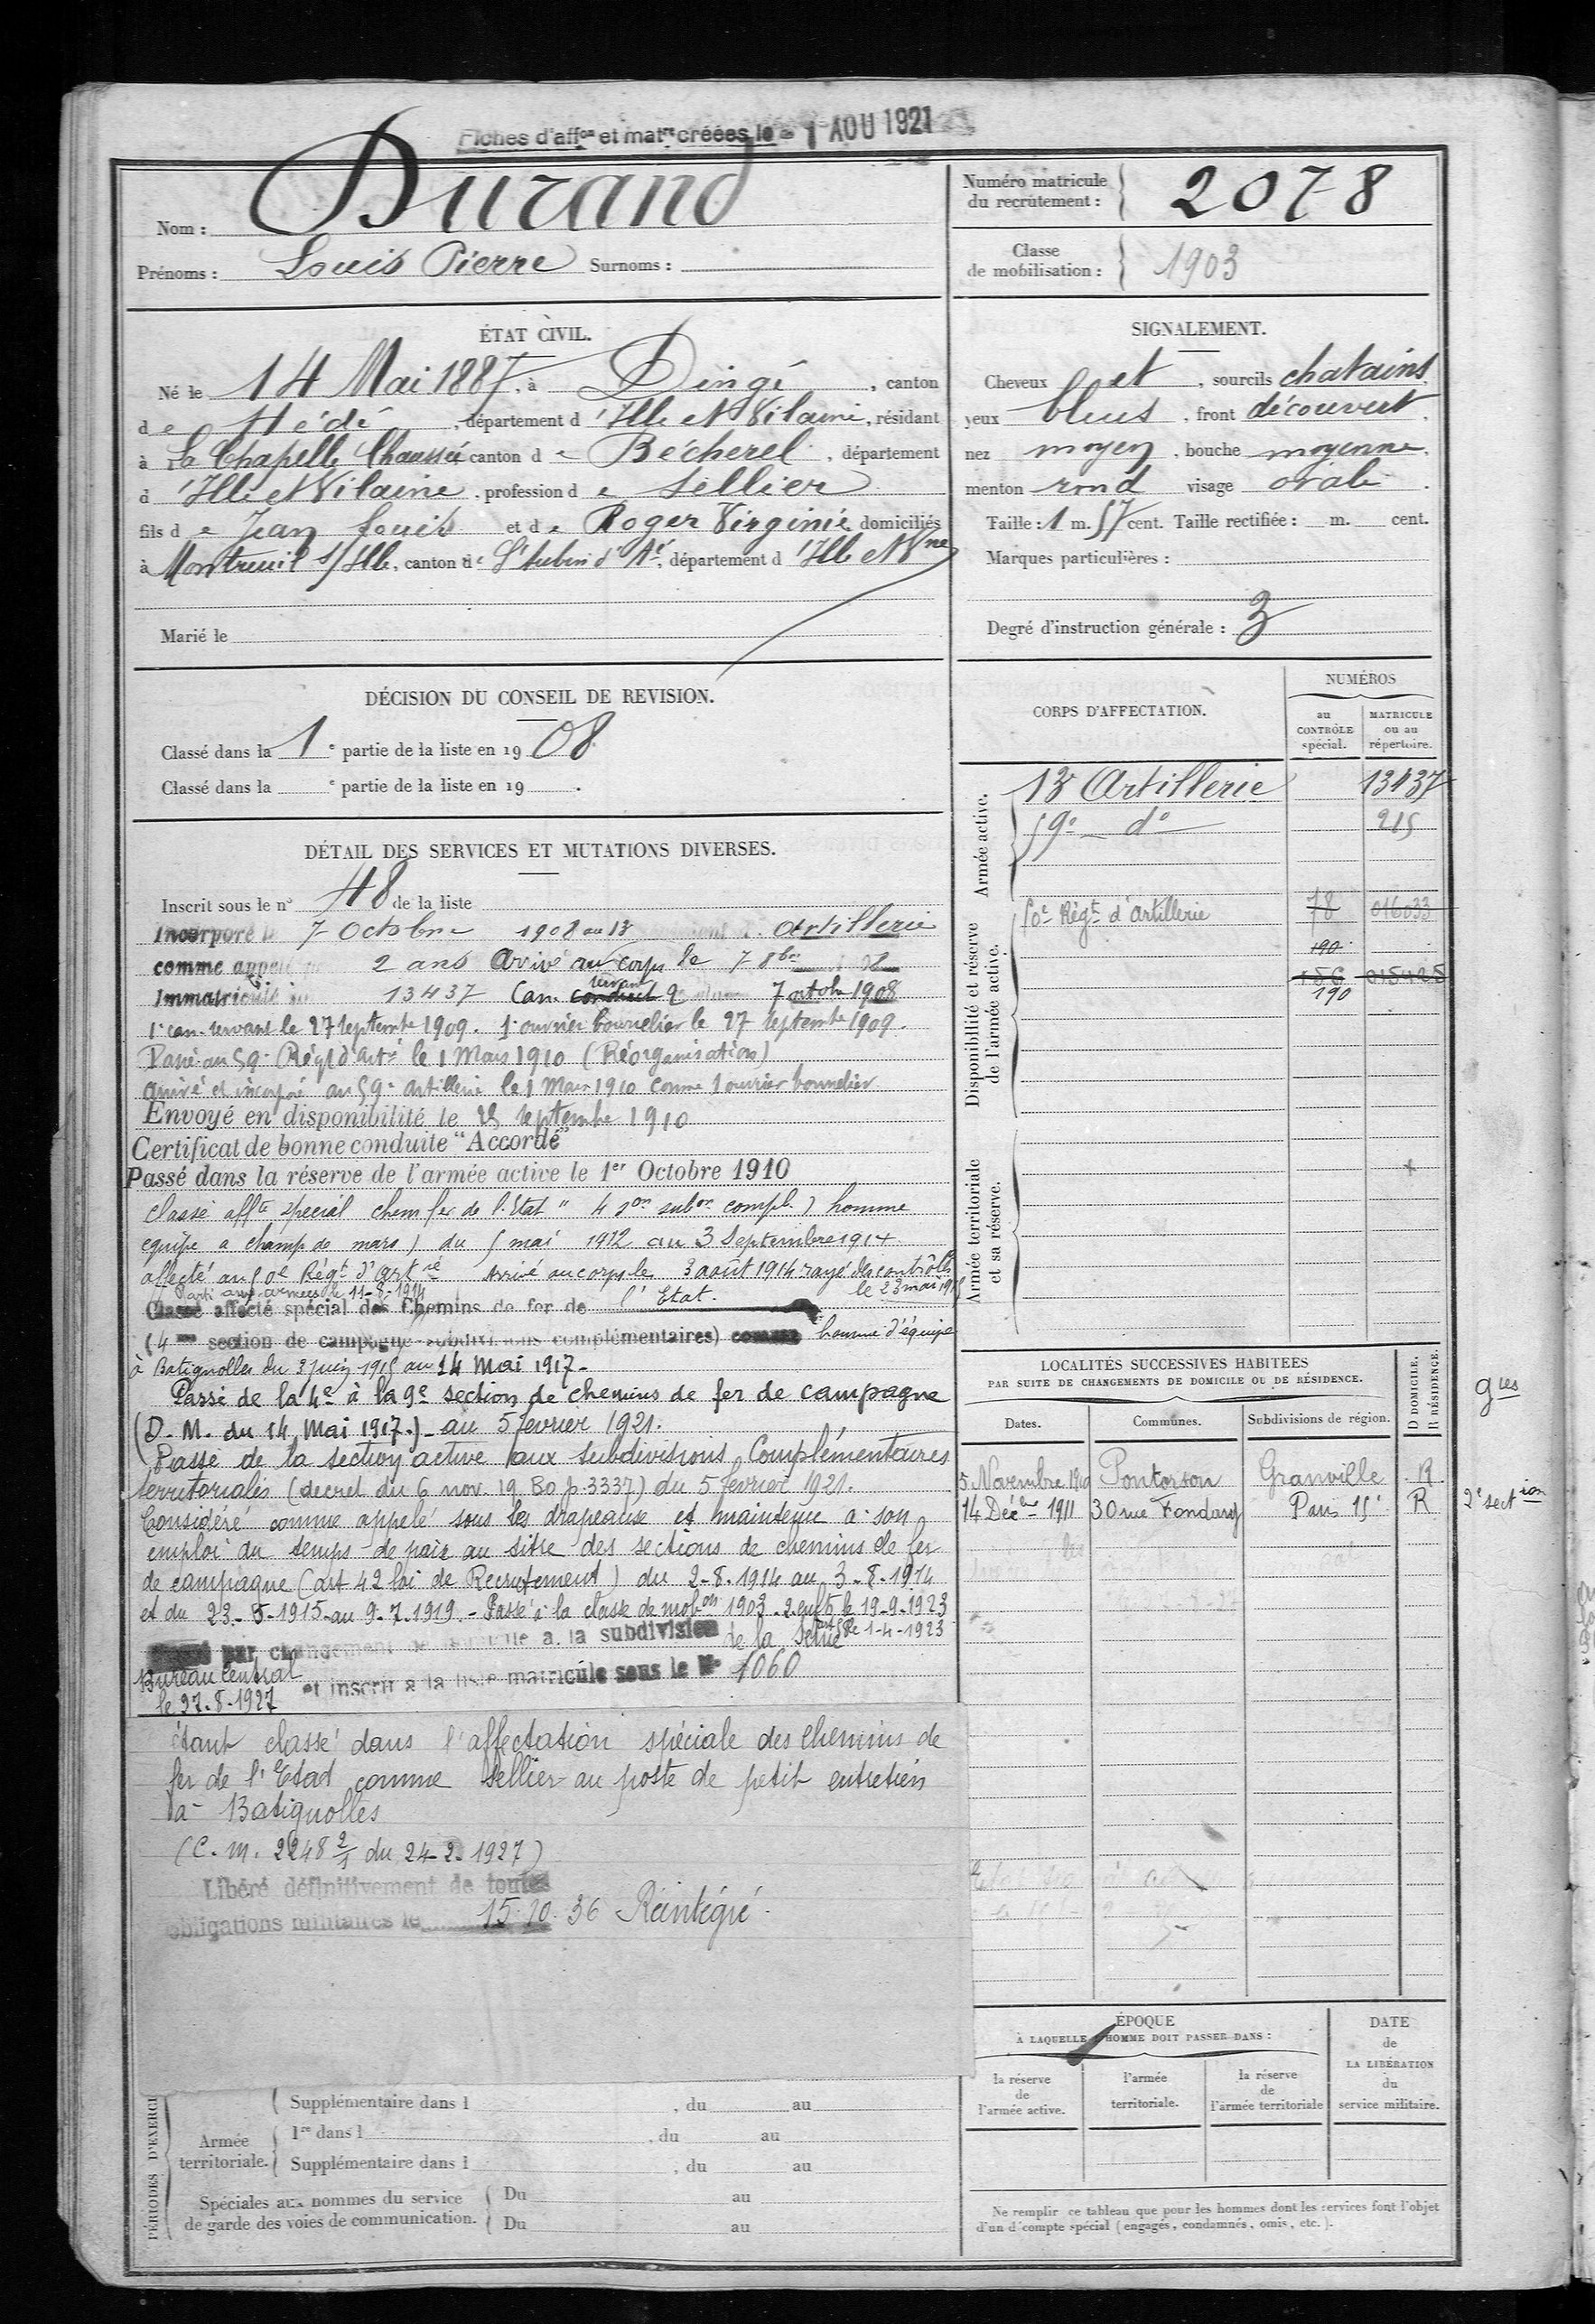 Fiches d'affon et matre créées le - 1 AOU 1921
Nom : Durand
Prénoms : Louis Pierre Surnoms :
Numéro matricule du recrutement : 2078
Classe de mobilisation : 1903
ÉTAT CIVIL.
Né le 14 Mai 1887, à Dingé, canton
de Hédé, département d'Ille et Vilaine, résidant
à La Chapelle Chaussée canton de Bécherel, département
d'Ille et Vilaine, profession de Sellier
fils de Jean Louis et de Roger Virginie domiciliés
à Montreuil s/Ille, canton de St Aubin d'Aé, département d'Ille et Vne
Marié le
SIGNALEMENT.
Cheveux et, sourcils chatains
yeux bleus, front découvert
nez moyen, bouche moyenne,
menton rond visage ovale.
Taille : 1 m. 57 cent. Taille rectifiée : m. cent.
Marques particulières :
Degré d'instruction générale : 3
DÉCISION DU CONSEIL DE REVISION.
Classé dans la 1e partie de la liste en 1908.
Classé dans la e partie de la liste en 19 .
DÉTAIL DES SERVICES ET MUTATIONS DIVERSES.
Inscrit sous le n° 48 de la liste
Incorporé le 7 Octobre 1908 au 13 Artillerie
comme appelé 2 ans Arrivé au corps le 7 8bre 08
Immatriculé 13437 Can. conduct servant 2 7 octobre 1908
1e can. servant le 27 septembre 1909. 1e ouvrier bourrelier le 27 septembre 1909.
Passé au 59e Régt d'Artie le 1 Mars 1910 (Réorganisation)
arrivé et incorporé au 59e artillerie le 1 Mars 1910 comme 1 ouvrier bourrelier
Envoyé en disponibilité le 25 septembre 1910
Certificat de bonne conduite "Accordé"
Passé dans la réserve de l'armée active le 1er Octobre 1910
classé affté spécial chem fer de l'Etat " 4 son subon compl.) homme
equipe a champ de mars) du 5 mai 1912 au 3 Septembre 1914
affecté au 50e Régt d'artrie Arrivé au corps le 3 août 1914 rayé des contrôles
Parti aux armées le 11-8-1914 le 23 mai 1915
Classé affecté spécial des Chemins de fer de l'Etat.
(4me section de campagne subdivisions complémentaires) comme homme d'équipe
à Batignolles du 3 juin 1915 au 14 Mai 1917.
Passé de la 4e à la 9e section de chemins de fer de campagne
(D.M. du 14 Mai 1917.) au 5 février 1921.
Passé de la section active aux subdivisions Complémentaires
territoriales (decret du 6 nov. 19 Bo p. 3337) du 5 février 1921.
Considéré comme appelé sous les drapeaux et maintenu à son
emploi du temps de paix au titre des sections de chemins de fer
de campagne (art 42 loi de Recrutement) du 2-8-1914 au 3-8-1914
et du 23-5-1915 au 9-7-1919. Passé à la classe de mobon 1903. 2 enfts le 19-9-1923
art 58 le 1-4-1923
par changement de domicile à la subdivision de la Seine
Bureau Central et inscrit à la liste matricule sous le N° 1060
le 27-8-1927
étant classé dans l'affectation spéciale des chemins de
fer de l'Etat comme sellier au poste de petit entretien
à Batignolles
(C.m. 2248 2/1 du 24-2-1927)
Libéré définitivement de toutes
obligations militaires le 15.10.36 Réintégré.
PÉRIODES D'EXERCI
Armée territoriale.
Supplémentaire dans l , du au
1re dans l , du au
Supplémentaire dans l , du au
Spéciales aux hommes du service de garde des voies de communication.
Du au
Du au
CORPS D'AFFECTATION.
NUMÉROS
au CONTRÔLE spécial.
MATRICULE ou au répertoire.
Armée active.
13 Artillerie 13437
59e do 215
Disponibilité et réserve de l'armée active.
50e Régt d'Artillerie 78 016033
190
186 015425
190
Armée territoriale et sa réserve.
LOCALITÉS SUCCESSIVES HABITÉES
PAR SUITE DE CHANGEMENTS DE DOMICILE OU DE RÉSIDENCE.
Dates. Communes. Subdivisions de région. D DOMICILE. R RÉSIDENCE.
gues
5 Novembre 1910 Pontorson Granville R
14 Décbre 1911 30 rue Fondary Paris 15e R 2e section
ÉPOQUE
À LAQUELLE L'HOMME DOIT PASSER DANS :
la réserve de l'armée active.
l'armée territoriale.
la réserve de l'armée territoriale
DATE de LA LIBÉRATION du service militaire.
Ne remplir ce tableau que pour les hommes dont les services font l'objet
d'un décompte spécial (engagés, condamnés, omis, etc.).